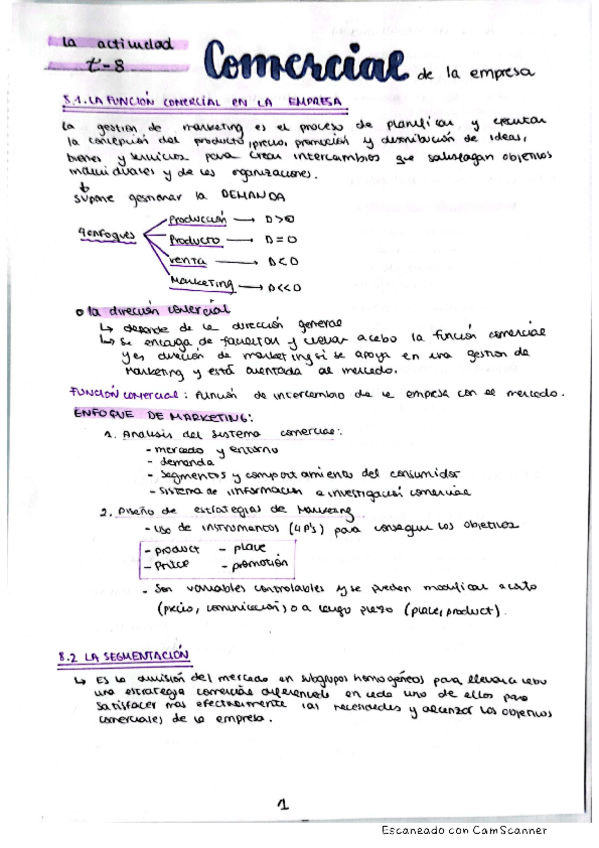 la actividad
t-8
Comercial de la empresa
8.1. LA FUNCIÓN COMERCIAL EN LA EMPRESA
La gestión de marketing es el proceso de planificar y ejecutar
la concepción del producto, precio, promoción y distribución de ideas,
bienes y servicios para crear intercambios que satisfagan objetivos
individuales y de las organizaciones.
supone gestionar la DEMANDA
4 enfoques
Producción → D>O
Producto → D=O
venta → D<O
Marketing → D<<O
o la dirección comercial
↳ depende de la dirección general
↳ Se encarga de planificar y llevar a cabo la función comercial
y es dirección de marketing si se apoya en una gestión de
Marketing y está orientada al mercado.
FUNCIÓN COMERCIAL: función de intercambio de la empresa con el mercado.
ENFOQUE DE MARKETING:
1. Análisis del sistema comercial:
- mercado y entorno
- demanda
- segmentos y comportamiento del consumidor
- sistema de información e investigación comercial
2. Diseño de estrategias de Marketing
- Uso de instrumentos (4P's) para conseguir los objetivos
- product - place
- Price - promotión
- Son variables controlables y se pueden modificar a corto
(precio, comunicación) o a largo plazo (place, product).
8.2 LA SEGMENTACIÓN
↳ Es la división del mercado en subgrupos homogéneos para llevar a cabo
una estrategia comercial diferenciada en cada uno de ellos para
satisfacer más efectivamente las necesidades y alcanzar los objetivos
comerciales de la empresa.
1
Escaneado con CamScanner